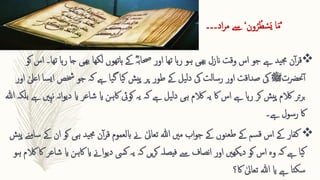 'مَا یَسْطُرُونَ' سے مراد۔۔۔
قرآن مجید ہے جو اس وقت نازل بھی ہو رہا تھا اور صحابہؓ کے ہاتھوں لکھا بھی جا رہا تھا۔ اس کو
آنحضرتﷺ کی صداقت اور رسالت کی دلیل کے طور پر پیش کیا گیا ہے کہ جو شخص ایسا اعلیٰ اور
برتر کلام پیش کر رہا ہے اس کا یہ کلام ہی دلیل ہے کہ یہ کوئی کاہن یا شاعر یا دیوانہ نہیں ہے بلکہ اللہ
کا رسول ہے۔
کفار کے اس قسم کے طعنوں کے جواب میں اللہ تعالیٰ نے بالعموم قرآن مجید ہی کو ان کے سامنے پیش
کیا ہے کہ وہ اس کو دیکھیں اور انصاف سے فیصلہ کریں کہ یہ کسی دیوانے یا کاہن یا شاعر کا کلام ہو
سکتا ہے یا اللہ تعالیٰ کا؟